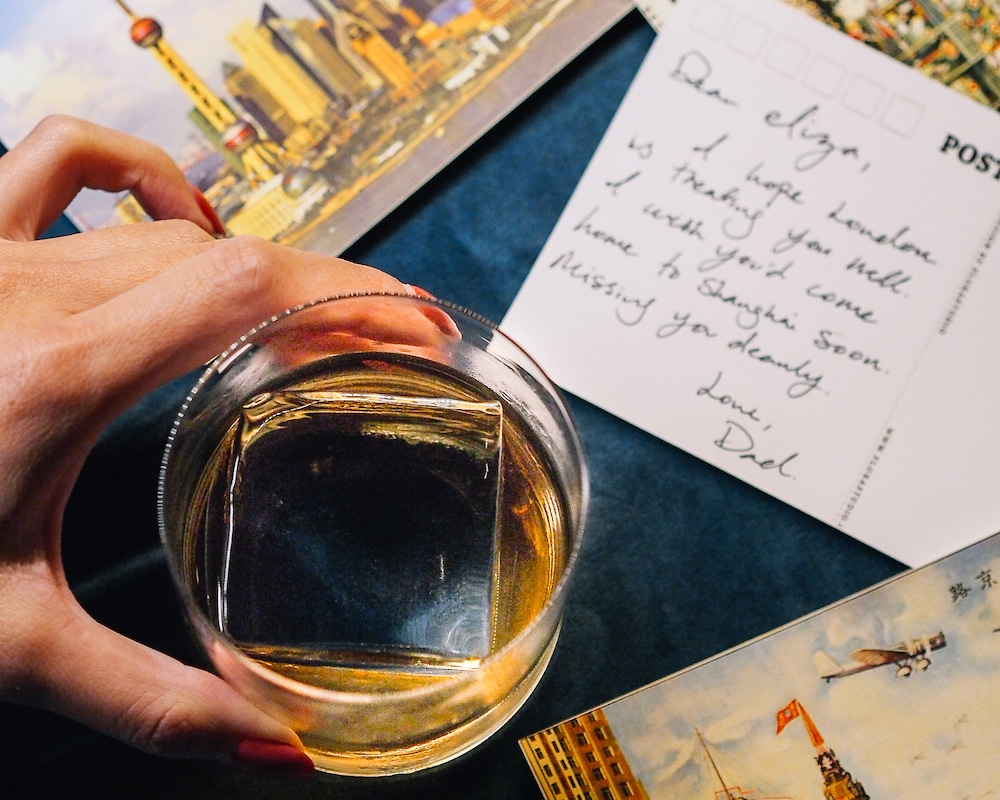 Dear Eliza,
I hope London
is treating you well.
I wish you'd come
home to Shanghai soon.
Missing you dearly.
Love,
Dad.
POST
路京